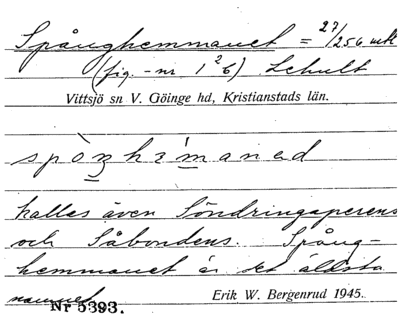 Spånghemmanet = 27/256 mtl
(fig.-nr 1²6) Schult
Vittsjö sn V. Göinge hd, Kristianstads län.
kalles även Söndringaperens
och Såbondens. Spång-
hemmanet är det äldsta
namnet.
Erik W. Bergenrud 1945.
Nr 5393.